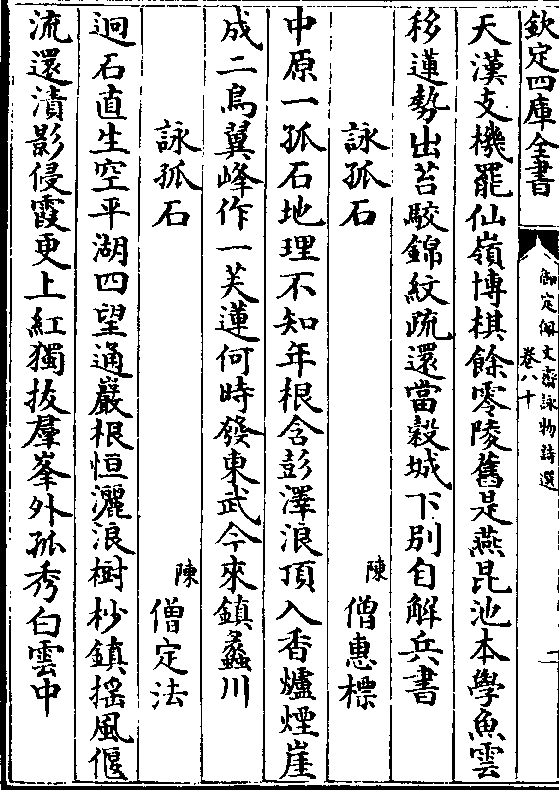 欽定四庫全書
御定佩文齋詠物詩選
卷八十
天漢支機罷仙嶺博棋餘零陵舊是燕昆池本學魚雲
移蓮勢出苔駮錦紋疏還當穀城下別自解兵書
詠孤石
陳
僧惠標
中原一孤石地理不知年根含彭澤浪頂入香爐煙崖
成二鳥翼峰作一芙蓮何時發東武今來鎮蠡川
詠孤石
陳
僧定法
迥石直生空平湖四望通巖根恒灑浪樹杪鎮搖風偃
流還漬影侵霞更上紅獨拔羣峯外孤秀白雲中